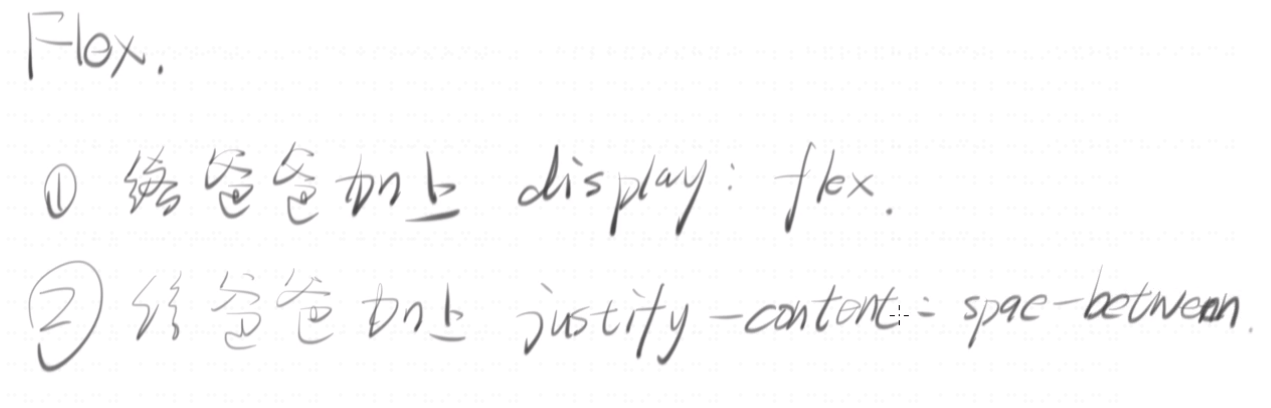 Flex.
① 给爸爸加上 display: flex.
② 给爸爸加上 justify-content: spae-between.